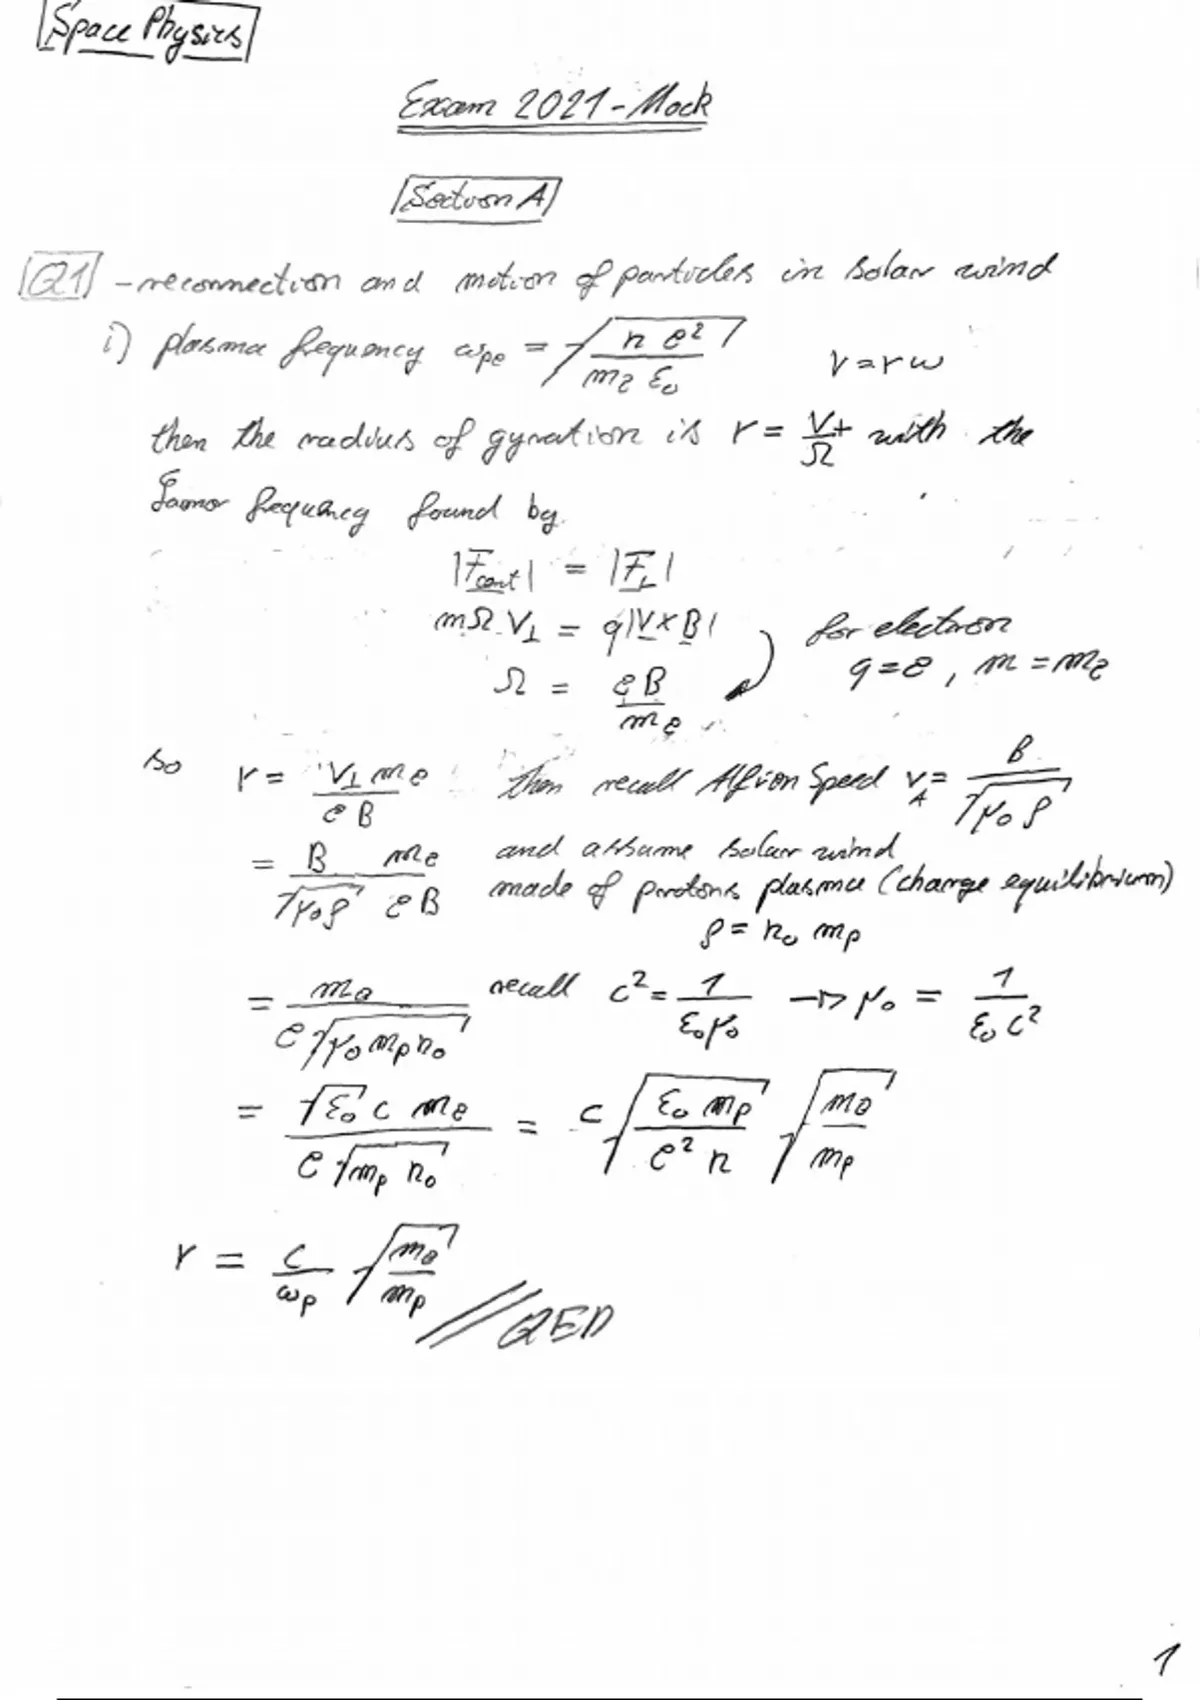 Space Physics
Exam 2021 - Mock
Section A
Q1 - reconnection and motion of particles in solar wind
i) plasma frequency ω_pe = √(n e² / m_e ε_0) v = r ω
then the radius of gyration is r = v_⊥/Ω with the
Larmor frequency found by
|F_cent| = |F_L|
mΩ v_⊥ = q|v × B| for electron
Ω = eB / m_e q = e, m = m_e
so r = v_⊥ m_e / eB then recall Alfvon Speed v_A = B / √(μ_0 ρ)
= B / √(μ_0 ρ) m_e / eB and assume solar wind
made of protons plasma (charge equilibrium)
ρ = n_0 m_p
= m_e / e√(μ_0 m_p n_0) recall c² = 1 / ε_0 μ_0 → μ_0 = 1 / ε_0 c²
= √ε_0 c m_e / e√(m_p n_0) = c √(ε_0 m_p / e² n) √(m_e / m_p)
r = c / ω_p √(m_e / m_p) // QED
1